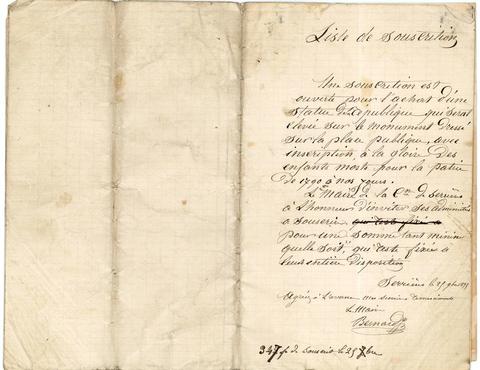 Liste de Souscrition
Un souscrition est
ouverte pour l'achat d'une
Statue de République qui serat
élevée sur le monument dressé
sur la place publique, avec
inscription, à la gloire des
enfants morts pour la patrie
de 1790 à nos jours.
Le Maire de la Cne de Serriers
à l'honneur d'inviter ses administrés
a souscrir qui reste fixé a
pour une somme tant minim
quelle soit, qui reste fixée à
leur entière disposition
Serriers le 25 9bre
Agréez à l'avance mes
Le Maire
Bernard
347 f de Souscrit le 25